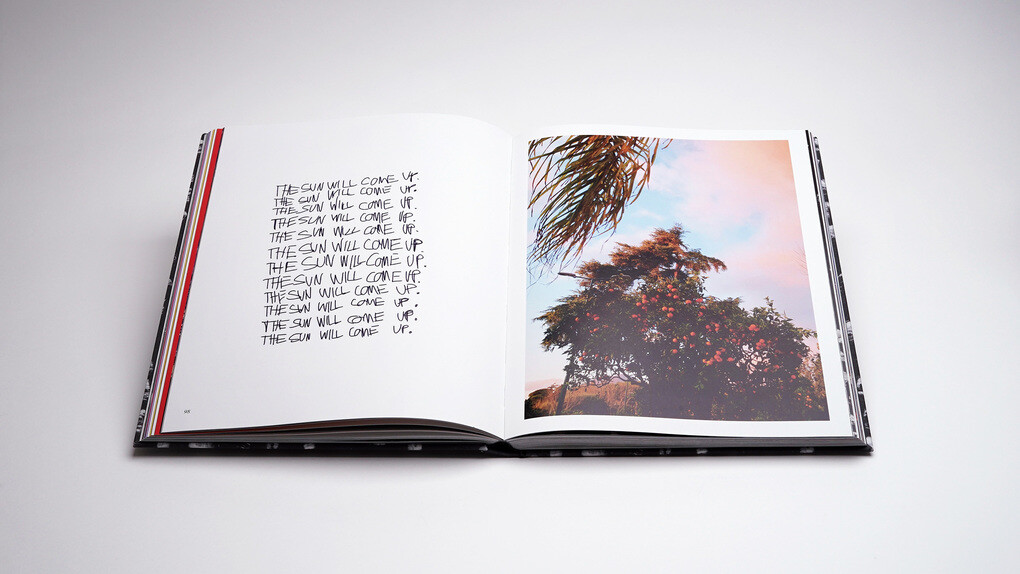 THE SUN WILL COME UP.
THE SUN WILL COME UP.
THE SUN WILL COME UP.
THE SUN WILL COME UP.
THE SUN WILL COME UP.
THE SUN WILL COME UP.
THE SUN WILL COME UP.
THE SUN WILL COME UP.
THE SUN WILL COME UP.
THE SUN WILL COME UP.
THE SUN WILL COME UP.
THE SUN WILL COME UP.